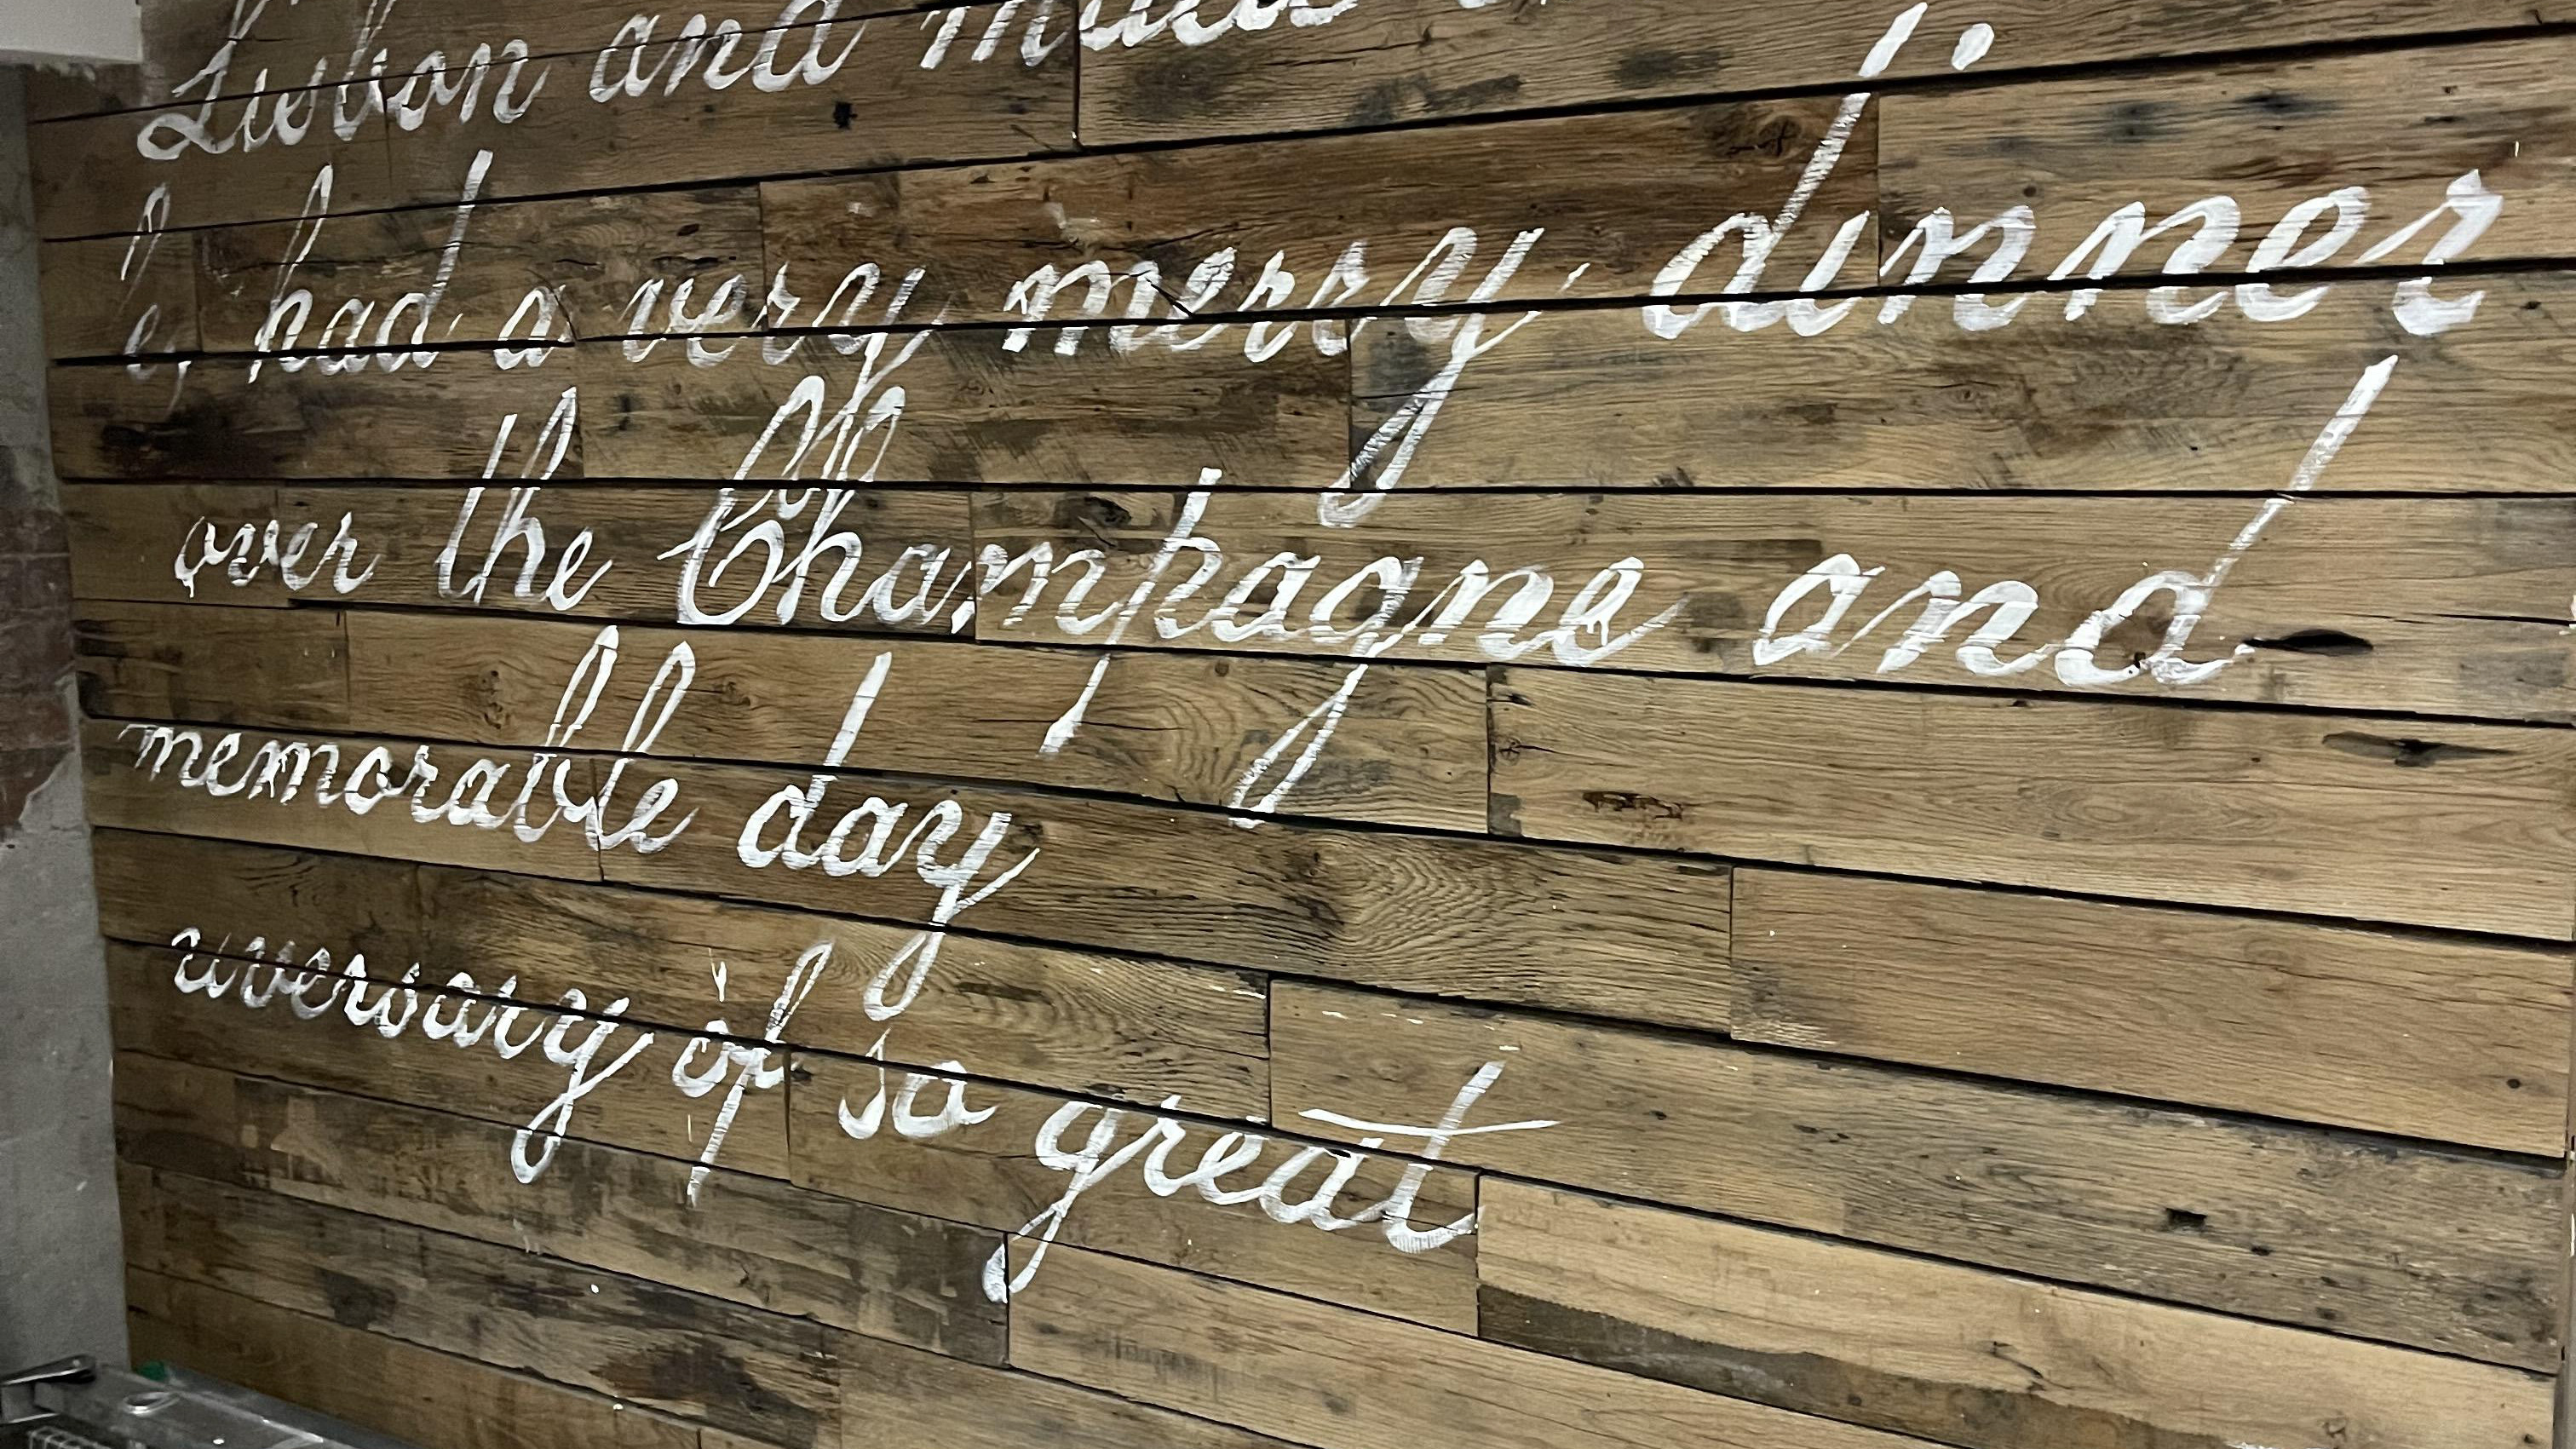 Lisbon and
had a very merry dinner
over the Champagne and
memorable day
iversary of so great